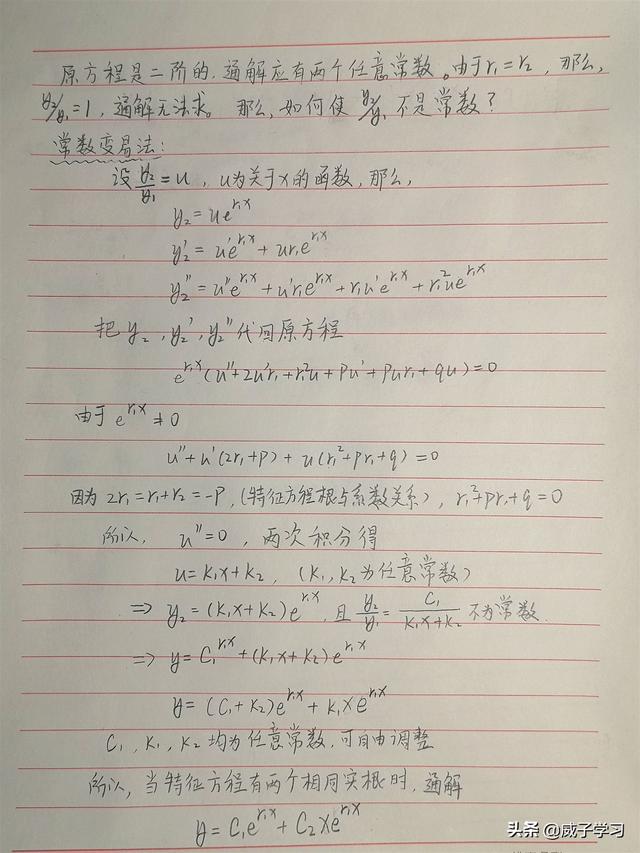 原方程是二阶的，通解应有两个任意常数。由于r₁=r₂，那么，
y₂/y₁=1，通解无法求。那么，如何使 y₂/y₁ 不是常数？
常数变易法：
设 y₂/y₁=u，u为关于x的函数，那么，
y₂=ue^{r₁x}
y₂'=u'e^{r₁x}+ur₁e^{r₁x}
y₂''=u''e^{r₁x}+u'r₁e^{r₁x}+r₁u'e^{r₁x}+r₁²ue^{r₁x}
把 y₂,y₂',y₂''代回原方程
e^{r₁x}(u''+2u'r₁+r₁²u+pu'+pur₁+qu)=0
由于 e^{r₁x}≠0
u''+u'(2r₁+p)+u(r₁²+pr₁+q)=0
因为 2r₁=r₁+r₂=-p,(特征方程根与系数关系)，r₁²+pr₁+q=0
所以，u''=0，两次积分得
u=k₁x+k₂，（k₁,k₂为任意常数）
⇒ y₂=(k₁x+k₂)e^{r₁x}，且 y₂/y₁=C₁/(k₁x+k₂) 不为常数.
⇒ y=C₁^{r₁x}+(k₁x+k₂)e^{r₁x}
y=(C₁+k₂)e^{r₁x}+k₁xe^{r₁x}
C₁,k₁,k₂均为任意常数,可自由调整
所以，当特征方程有两个相同实根时，通解
y=C₁e^{r₁x}+C₂xe^{r₁x}
头条 @威子学习